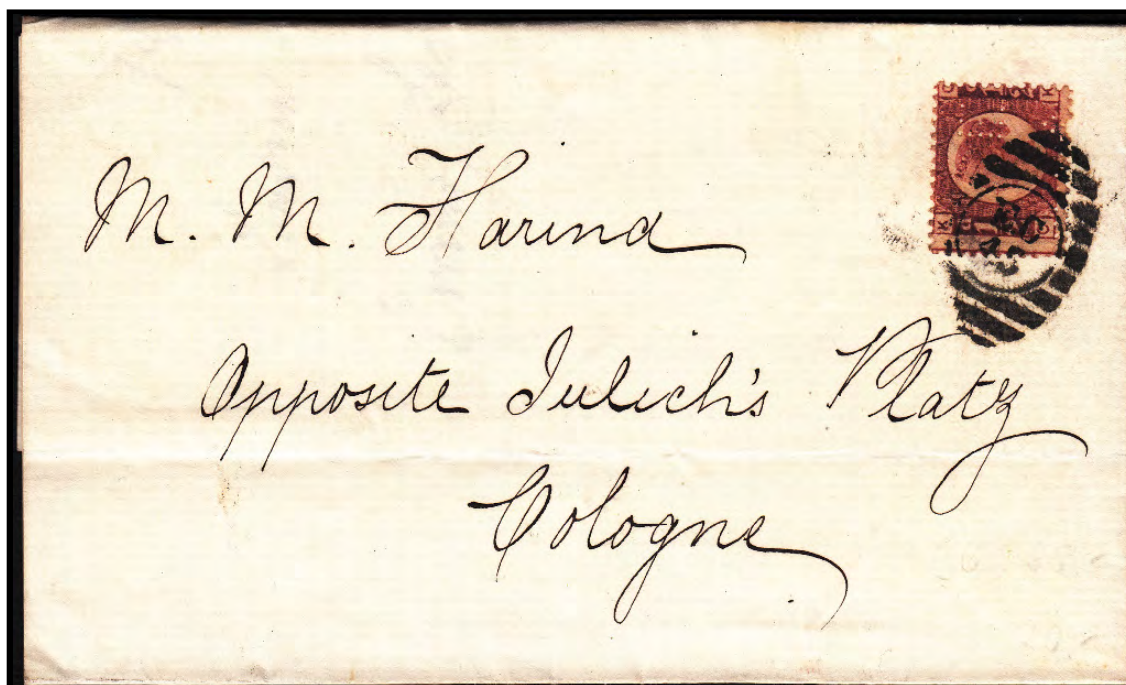 M. M. Farina
Opposite Julich's Platz
Cologne